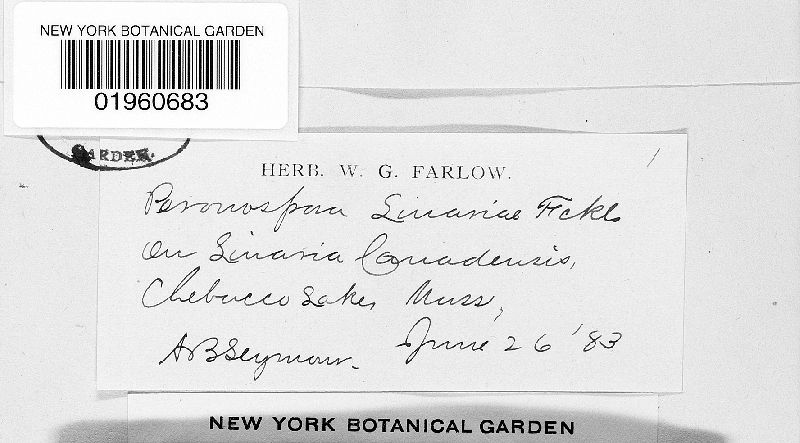 NEW YORK BOTANICAL GARDEN
01960683
GARDEN.
HERB. W. G. FARLOW.
Peronospora Linariae Fckl.
on Linaria Canadensis,
Chebacco Lake, Mass,
A B Seymour. June 26 '83
NEW YORK BOTANICAL GARDEN